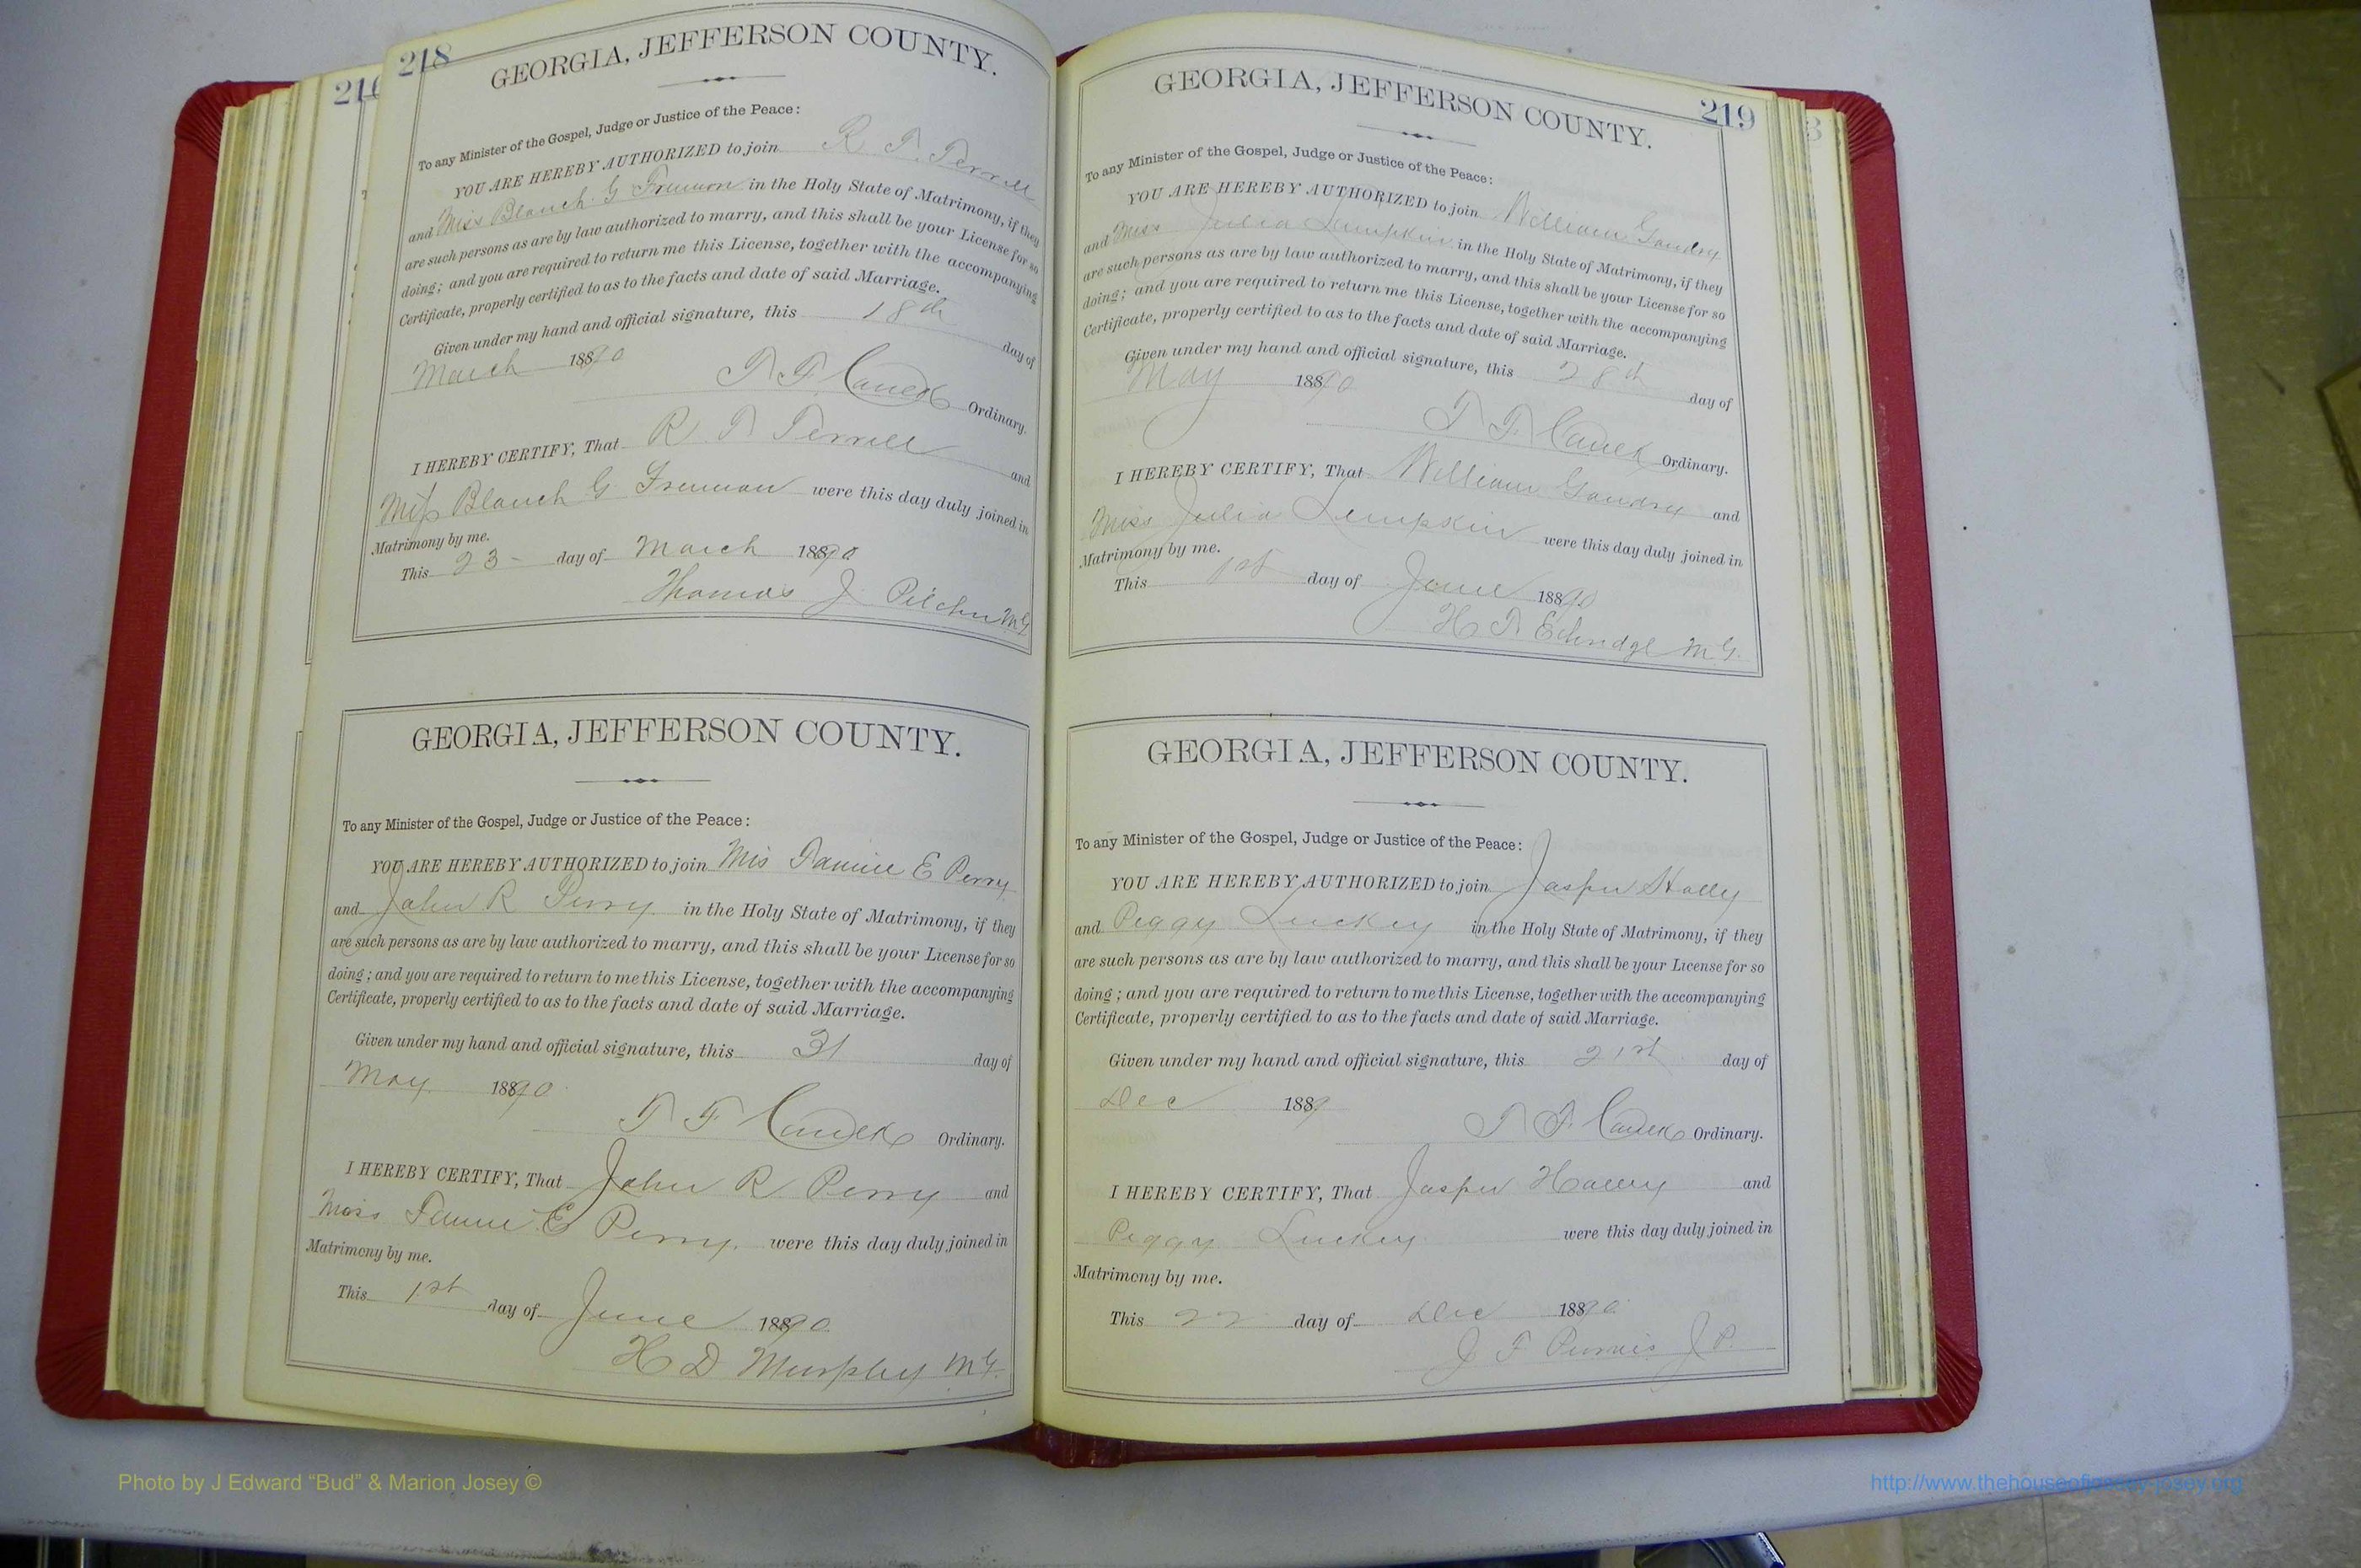 216
218
GEORGIA, JEFFERSON COUNTY.
To any Minister of the Gospel, Judge or Justice of the Peace:
YOU ARE HEREBY AUTHORIZED to join R T Terrell
and Miss Blanch G Freeman in the Holy State of Matrimony, if they
are such persons as are by law authorized to marry, and this shall be your License for so
doing; and you are required to return me this License, together with the accompanying
Certificate, properly certified to as to the facts and date of said Marriage.
Given under my hand and official signature, this 18th day of
March 1890
T F Ordinary.
I HEREBY CERTIFY, That R T Terrell and
Miss Blanch G Freeman were this day duly joined in
Matrimony by me.
This 23 day of March 1890
Thomas J Pilcher MG
GEORGIA, JEFFERSON COUNTY.
To any Minister of the Gospel, Judge or Justice of the Peace:
YOU ARE HEREBY AUTHORIZED to join Mis Fannie E Perry
and John R Perry in the Holy State of Matrimony, if they
are such persons as are by law authorized to marry, and this shall be your License for so
doing; and you are required to return to me this License, together with the accompanying
Certificate, properly certified to as to the facts and date of said Marriage.
Given under my hand and official signature, this 31 day of
May 1890
T F Ordinary.
I HEREBY CERTIFY, That John R Perry and
Miss Fannie E Perry. were this day duly joined in
Matrimony by me.
This 1st day of June 1890
H D Murphy MG.
219
GEORGIA, JEFFERSON COUNTY.
To any Minister of the Gospel, Judge or Justice of the Peace:
YOU ARE HEREBY AUTHORIZED to join William
and Miss Julia Lumpkin in the Holy State of Matrimony, if they
are such persons as are by law authorized to marry, and this shall be your License for so
doing; and you are required to return me this License, together with the accompanying
Certificate, properly certified to as to the facts and date of said Marriage.
Given under my hand and official signature, this 28th day of
May 1890
T F Ordinary.
I HEREBY CERTIFY, That William and
Miss Julia Lumpkin were this day duly joined in
Matrimony by me.
This 1st day of June 1890
H T MG.
GEORGIA, JEFFERSON COUNTY.
To any Minister of the Gospel, Judge or Justice of the Peace:
YOU ARE HEREBY AUTHORIZED to join Jasper
and Peggy Luckey in the Holy State of Matrimony, if they
are such persons as are by law authorized to marry, and this shall be your License for so
doing; and you are required to return to me this License, together with the accompanying
Certificate, properly certified to as to the facts and date of said Marriage.
Given under my hand and official signature, this 21st day of
Dec 1889
T F Ordinary.
I HEREBY CERTIFY, That Jasper and
Peggy Luckey were this day duly joined in
Matrimony by me.
This 22 day of Dec 1890
J F Purvis J P.
Photo by J Edward “Bud” & Marion Josey ©